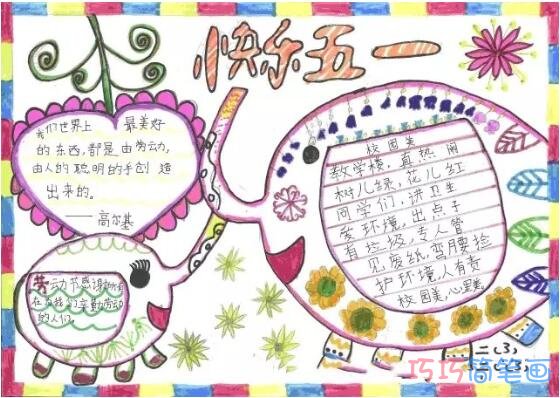 快乐五一
我们世界上 最美好
的东西,都是由劳动,
由人的聪明的手创造
出来的。
——高尔基
劳动节感谢所有
在为我们辛勤劳动
的人们。
校园美
数学楼,真热闹
树儿绿,花儿红
同学们,讲卫生
爱环境,出点子
有垃圾,专人管
见废纸,弯腰捡
护环境,人有责
校园美,心里美
二(3)
巧巧简笔画